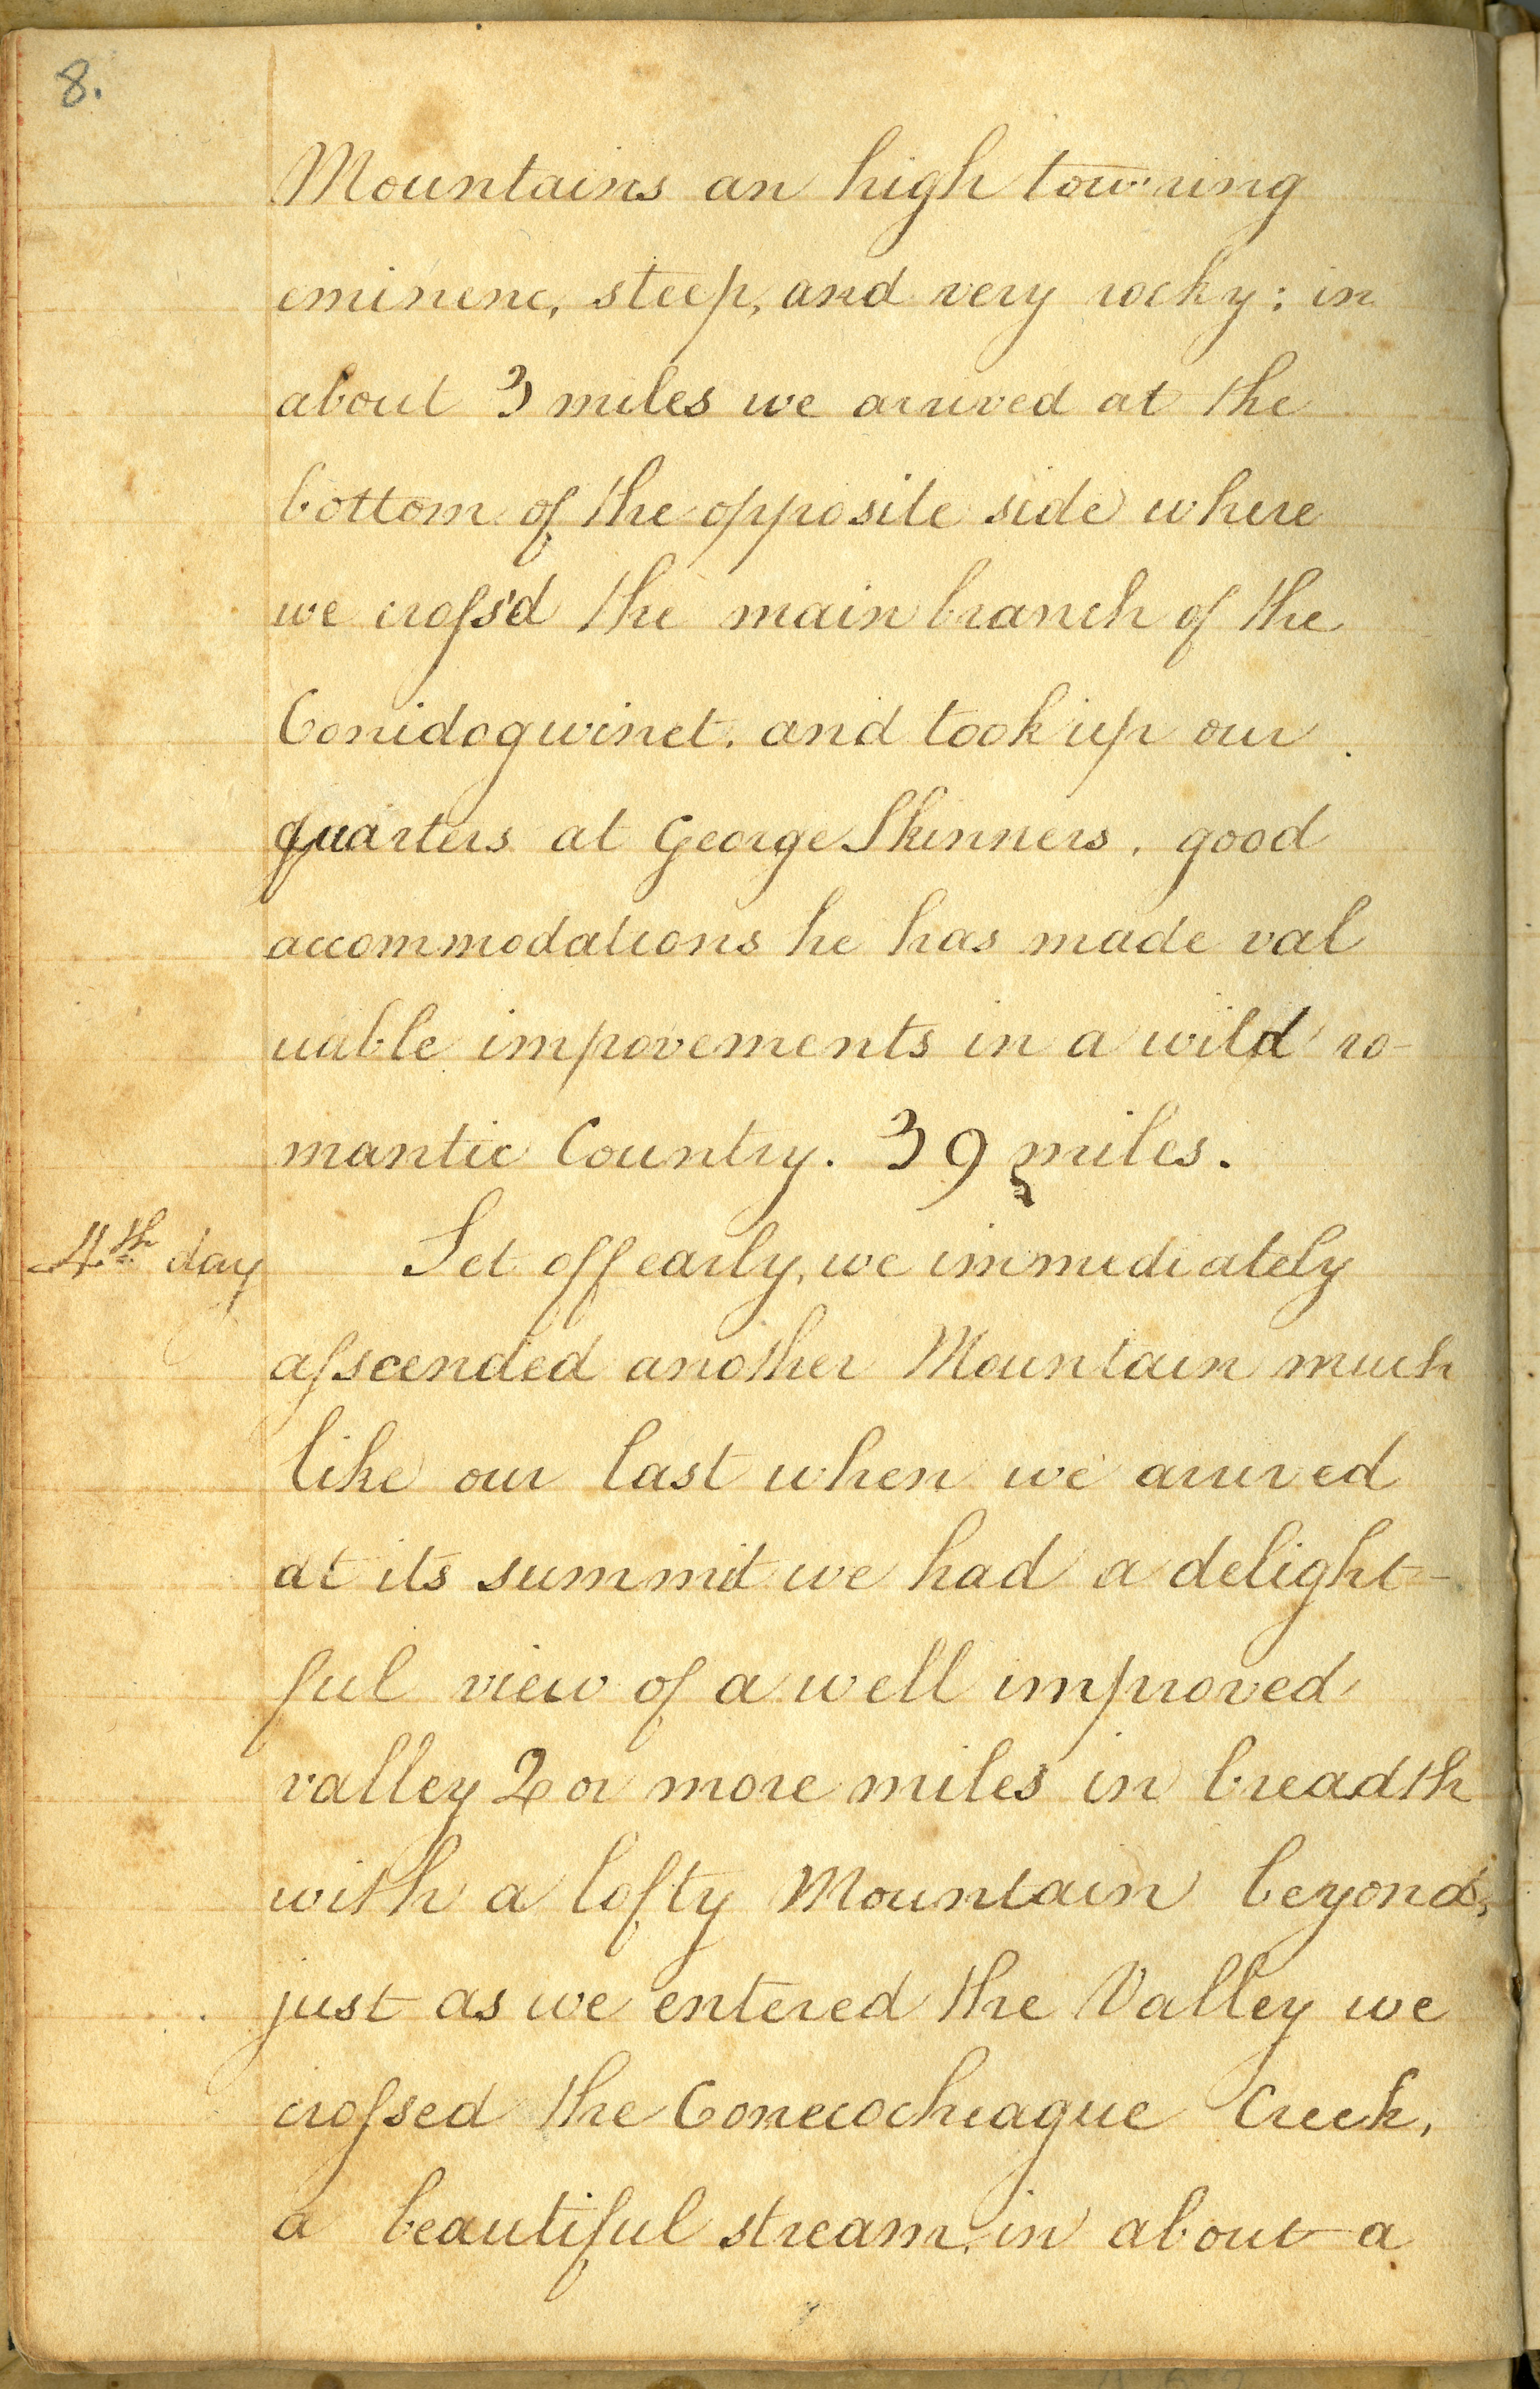 8.
Mountains an high tow'ring
eminenc, steep, and very rocky: in
about 3 miles we arrived at the
bottom of the opposite side where
we croſs'd the main branch of the
Conidogwinet. and took up our
quarters at George Skinners. good
accommodations he has made val
uable impovements in a wild ro-
mantic Country. 39 miles.
4th day Set off early, we immediately
aſscended another Mountain much
like our last when we arrived
at its summit we had a delight-
ful view of a well improved
valley 2 or more miles in breadth
with a lofty Mountain beyond,
just as we entered the Valley we
croſsed the Conecocheague Creek,
a beautiful stream, in about a